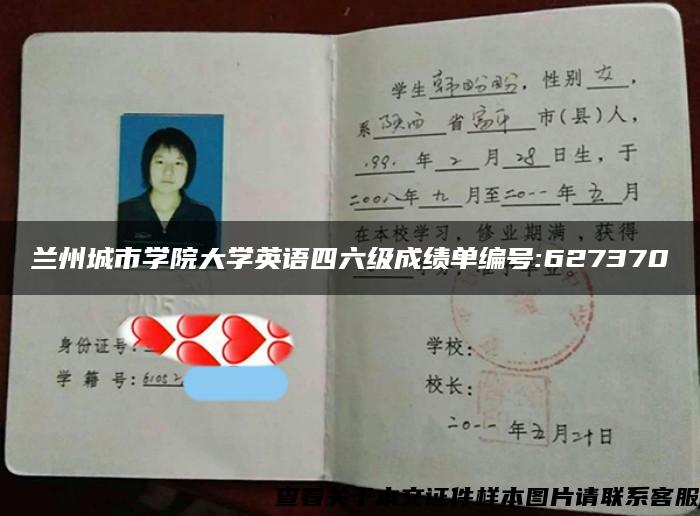 学生韩盼盼,性别女,
系陕西省富平市(县)人,
1991年2月28日生,于
二00八年九月至二0一一年五月
在本校学习,修业期满,获得
兰州城市学院大学英语四六级成绩单编号:627370
身份证号:
学籍号:61052
学校:
校长:
二0一一年五月二十日
查看关于本文证件样本图片请联系客服